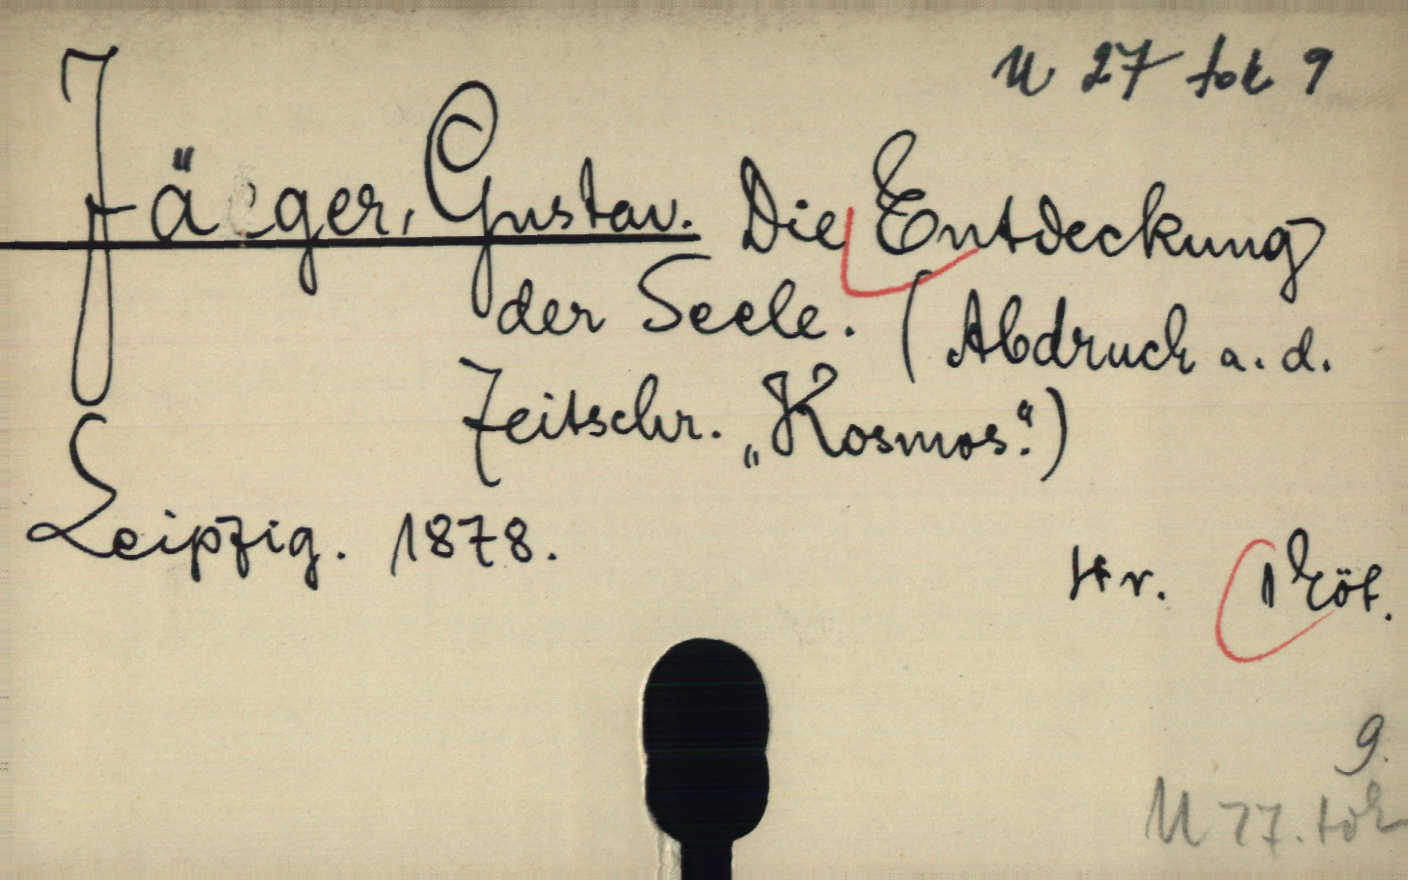 U 27 tok 9
Jäger, Gustav. Die Entdeckung
der Seele. (Abdruck a. d.
Zeitschr. „Kosmos“.)
Leipzig. 1878.
9.